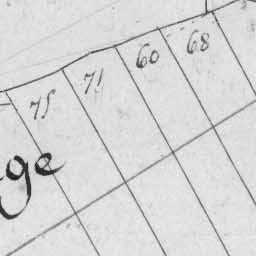 75 71 60 68
ge